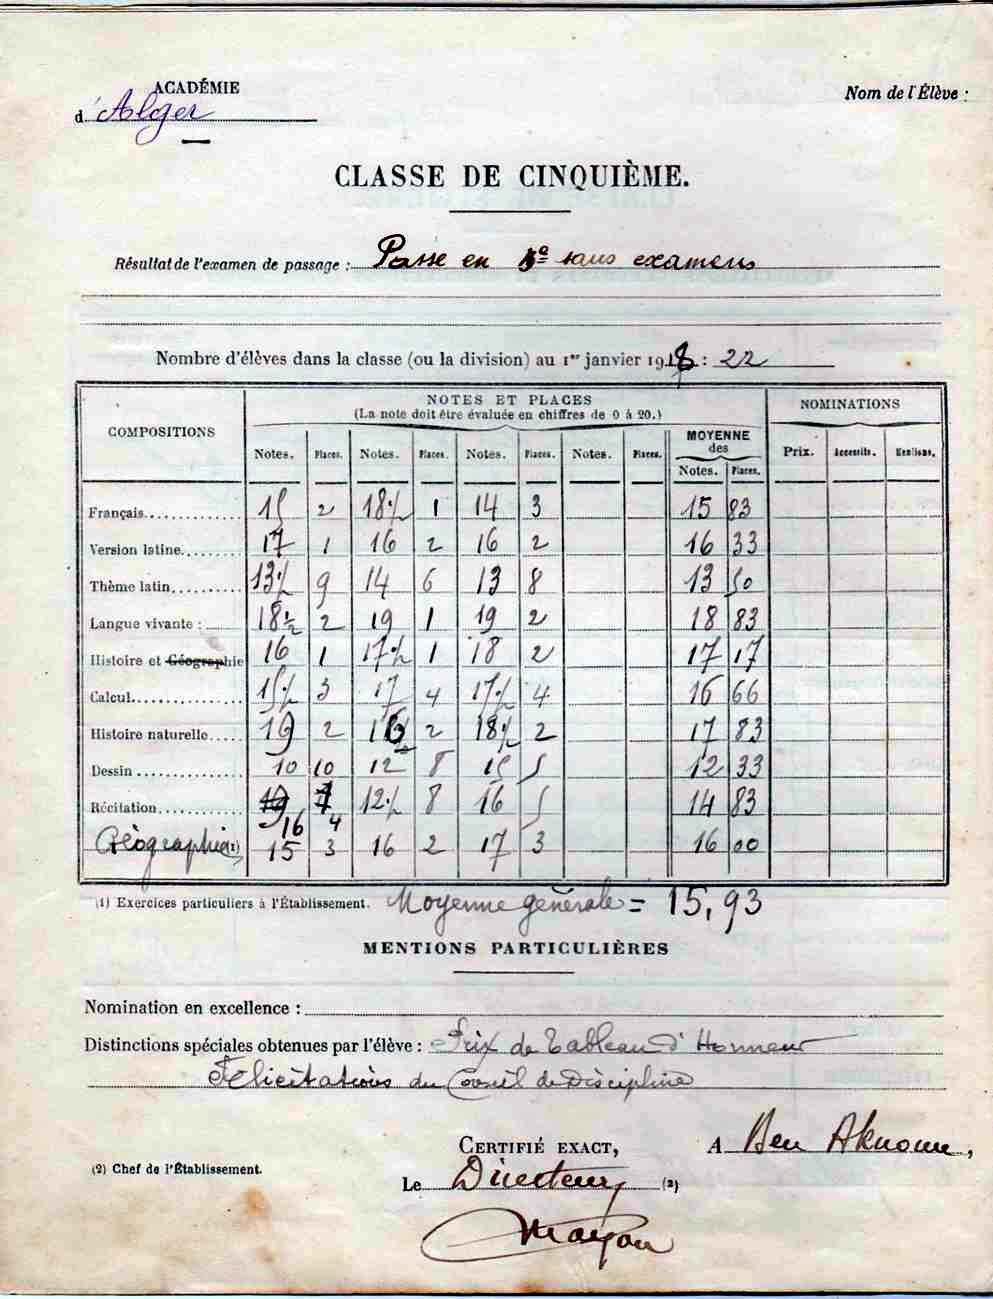 ACADÉMIE
d'Alger
Nom de l'Élève :
CLASSE DE CINQUIÈME.
Résultat de l'examen de passage : Passe en sans examens
Nombre d'élèves dans la classe (ou la division) au 1er janvier 1918 : 22
COMPOSITIONS NOTES ET PLACES NOMINATIONS
(La note doit être évaluée en chiffres de 0 à 20.)
MOYENNE des
Notes. Places. Notes. Places. Notes. Places. Notes. Places. Notes. Places. Prix. Accessits. Mentions.
Français 15 2 18½ 1 14 3 15 83
Version latine 17 1 16 2 16 2 16 33
Thème latin 13½ 9 14 6 13 8 13 50
Langue vivante : 18½ 2 19 1 19 2 18 83
Histoire et Géographie 16 1 17½ 1 18 2 17 17
Calcul 15½ 3 17 4 17½ 4 16 66
Histoire naturelle 19 2 16½ 2 18½ 2 17 83
Dessin 10 10 12 8 15 5 12 33
Récitation 16 4 12½ 8 16 5 14 83
Géographie (1) 15 3 16 2 17 3 16 00
(1) Exercices particuliers à l'Établissement. Moyenne générale = 15,93
MENTIONS PARTICULIÈRES
Nomination en excellence :
Distinctions spéciales obtenues par l'élève : Prix de Tableau d'Honneur
Félicitations du Conseil de Discipline
CERTIFIÉ EXACT, A Ben Aknoun,
(2) Chef de l'Établissement.
Le Directeur (2)